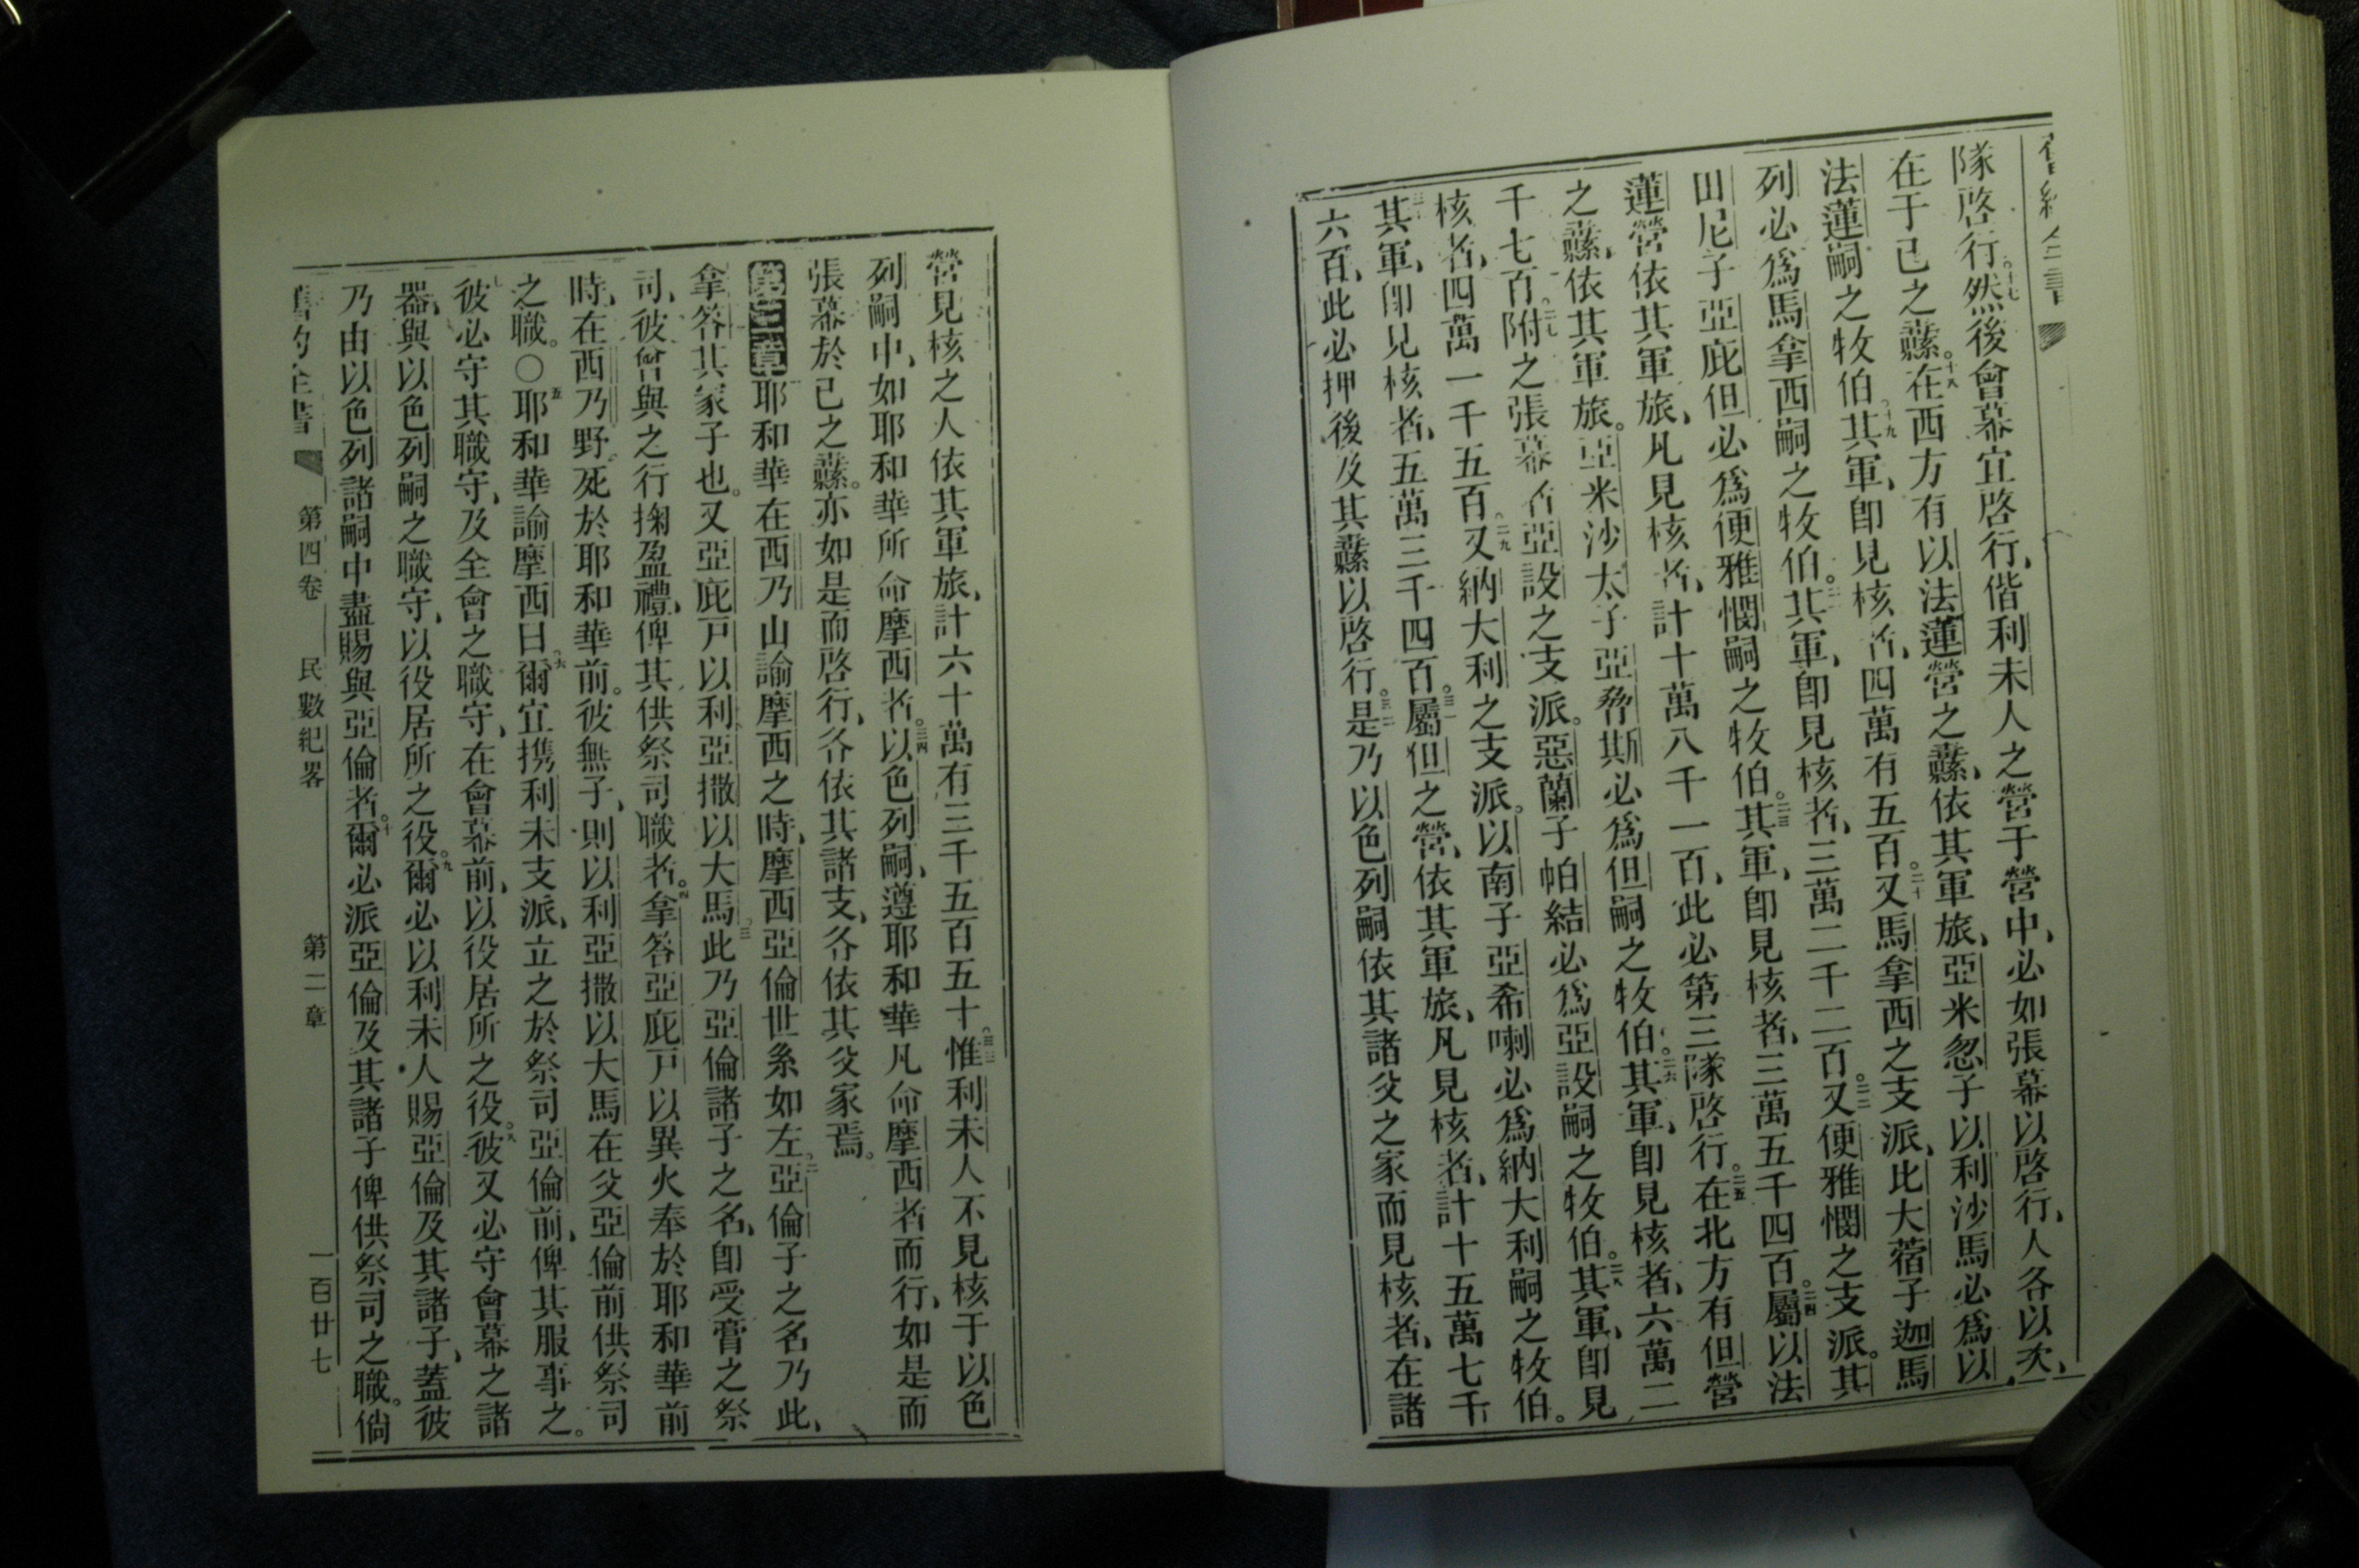 隊啓行。十七然後會幕宜啓行、偕利未人之營于營中、必如張幕以啓行、人各以次、
在于己之纛。十八在西方有以法蓮營之纛、依其軍旅、亞米忽子以利沙馬必爲以
法蓮嗣之牧伯。十九其軍、卽見核者、四萬有五百。二十又馬拿西之支派、比大蓿子迦馬
列必爲馬拿西嗣之牧伯。二一其軍、卽見核者、三萬二千二百。二二又便雅憫之支派。其
田尼子亞庇但必爲便雅憫嗣之牧伯。二三其軍、卽見核者、三萬五千四百。二四屬以法
蓮營依其軍旅、凡見核者、計十萬八千一百、此必第三隊啓行。二五在北方有但營
之纛、依其軍旅。亞米沙太子亞脅斯必爲但嗣之牧伯。二六其軍、卽見核者、六萬二
千七百。二七附之張幕者亞設之支派。惡蘭子帕結必爲亞設嗣之牧伯。二八其軍、卽見
核者、四萬一千五百。二九又納大利之支派。以南子亞希喇必爲納大利嗣之牧伯。
三十其軍、卽見核者、五萬三千四百。三一屬但之營、依其軍旅、凡見核者、計十五萬七千
六百、此必押後及其纛以啓行。三二是乃以色列嗣依其諸父之家而見核者、在諸
營見核之人依其軍旅、計六十萬有三千五百五十。三三惟利未人不見核于以色
列嗣中、如耶和華所命摩西者。三四以色列嗣、遵耶和華凡命摩西者而行、如是而
張幕於己之纛。亦如是而啓行、各依其諸支、各依其父家焉。
第三章一耶和華在西乃山諭摩西之時、摩西亞倫世系如左。二亞倫子之名乃此、
拿答其家子也。又亞庇戸以利亞撒以大馬。三此乃亞倫諸子之名、卽受膏之祭
司、彼曾與之行掬盈禮、俾其供祭司職者。四拿答亞庇戸以異火奉於耶和華前
時、在西乃野。死於耶和華前。彼無子、則以利亞撒以大馬在父亞倫前供祭司
之職。〇五耶和華諭摩西曰、六爾宜携利未支派、立之於祭司亞倫前、俾其服事之。
七彼必守其職守、及全會之職守、在會幕前、以役居所之役。八彼又必守會幕之諸
器、與以色列嗣之職守、以役居所之役。九爾必以利未人賜亞倫及其諸子、蓋彼
乃由以色列諸嗣中盡賜與亞倫者。十爾必派亞倫及其諸子俾供祭司之職。倘
第四卷 民數紀畧 第二章 一百廿七